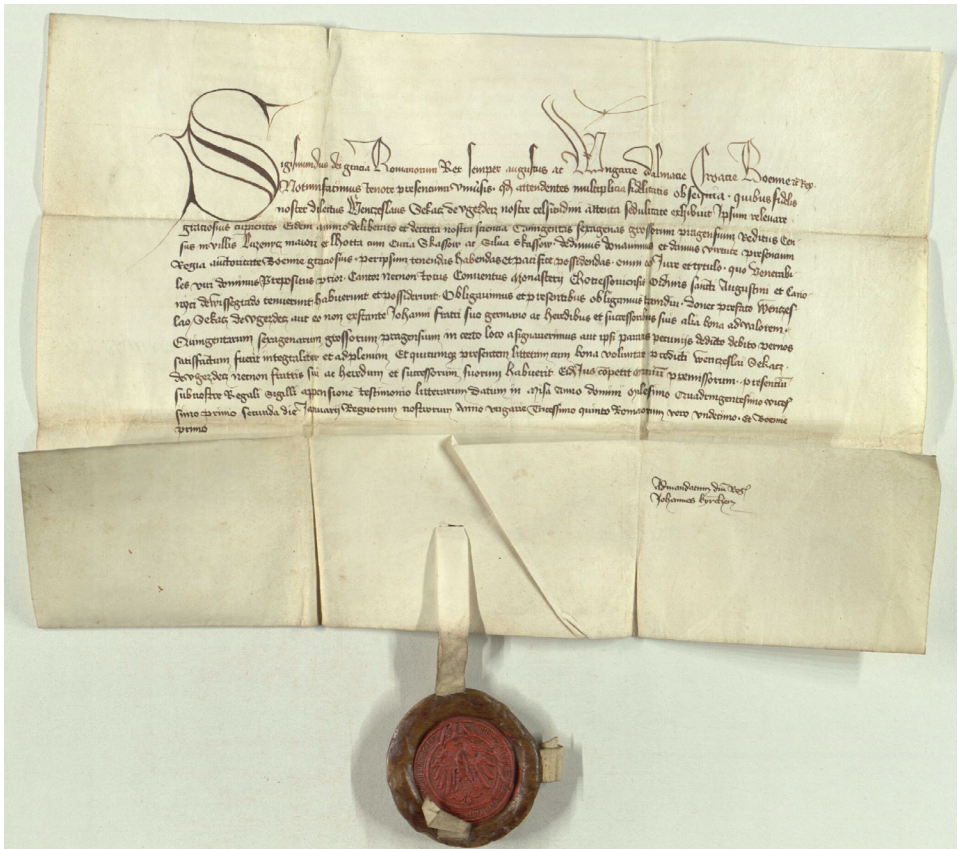 Sigismundus dei gracia Romanorum Rex semper augustus ac Vngarie dalmacie Croacie Boemie
Notumfacimus tenore presencium vniuersis qd attendentes multiplicia fidelitatis obsequia quibus fidelis
noster dilectus Wenczeslaus Sekacz de nostre celsitudini attenta sedulitate exhibuit Ipsum releuare
graciosius cupientes Eidem animo deliberato et decerta nostra sciencia Quingentas sexagenas grossorum pragensium Reditus Cen
sus in villis maiori et lhotta cum Curia Skassow ac Silua Skassow dedimus donauimus et damus virtute presencium
Regia auctoritate Boemie graciosius peripsum tenendas habendas et pacifice possidendas omni eo Jure et tytulo quo venerabi
les viri dominus Prepositus prior Cantor Necnon totus Conuentus Monasterij Ordinis sancti Augustini et Cano
nyci tenuerunt habuerunt et possiderunt Obligauimus et presentibus obligamus tamdiu donec prefato Wenczes
lao Sekacz de aut eo non exstante Johanni fratri suo germano ac heredibus et successoribus suis alia bona ad valorem
Quingentarum sexagenarum grossorum pragensium in certo loco assignauerimus aut ipsi paratis pecunijs dedicto debito per nos
satisfactum fuerit integraliter et adplenum Et quicumqz presentem litteram cum bona voluntate predicti Wenczeslai Sekacz
de necnon fratris sui ac heredum et successorum suorum habuerit Eidem competit premissorum presencium
sub nostre Regalis Sigilli appensione testimonio litterarum Datum in Anno domini Millesimo Quadringentesimo vices
simo primo secunda die Januarij Regnorum nostrorum Anno vngarie Tricesimo quinto Romanorum vero vndecimo Et Boemie
primo
Admandatum dni Regis
Johannes